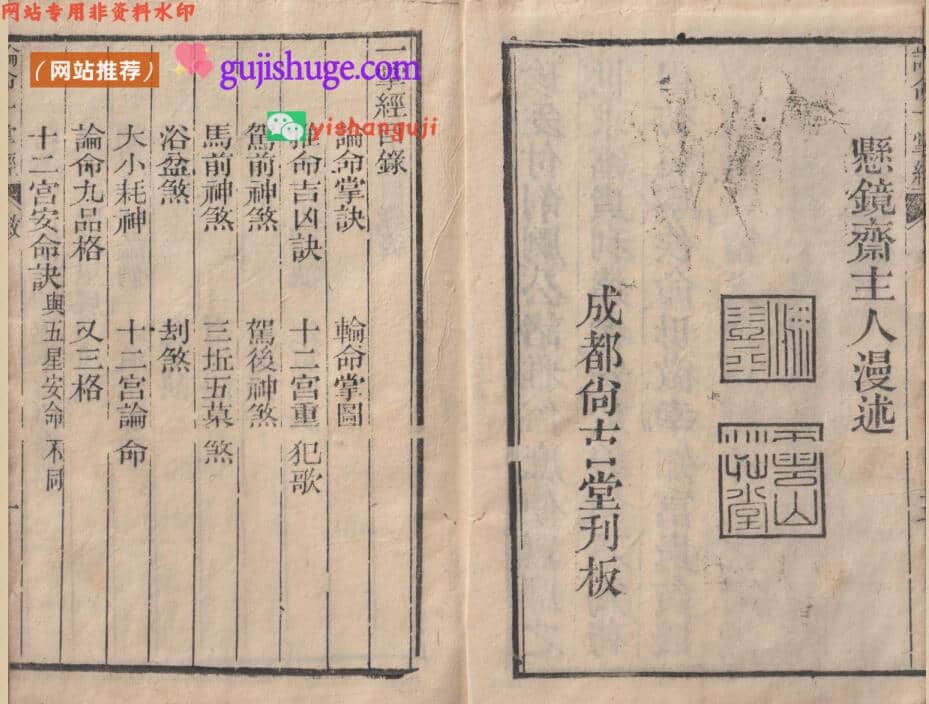 网站专用非资料水印
（网站推荐）
gujishuge.com
yishanguji
懸鏡齋主人漫述
成都尙古堂刊板
一掌經目錄
論命掌訣 輪命掌圖
推命吉凶訣 十二宫重犯歌
駕前神煞 駕後神煞
馬前神煞 三坵五墓煞
浴盆煞 刦煞
大小耗神 十二宫論命
論命九品格 又三格
十二宫安命訣與五星安命不同